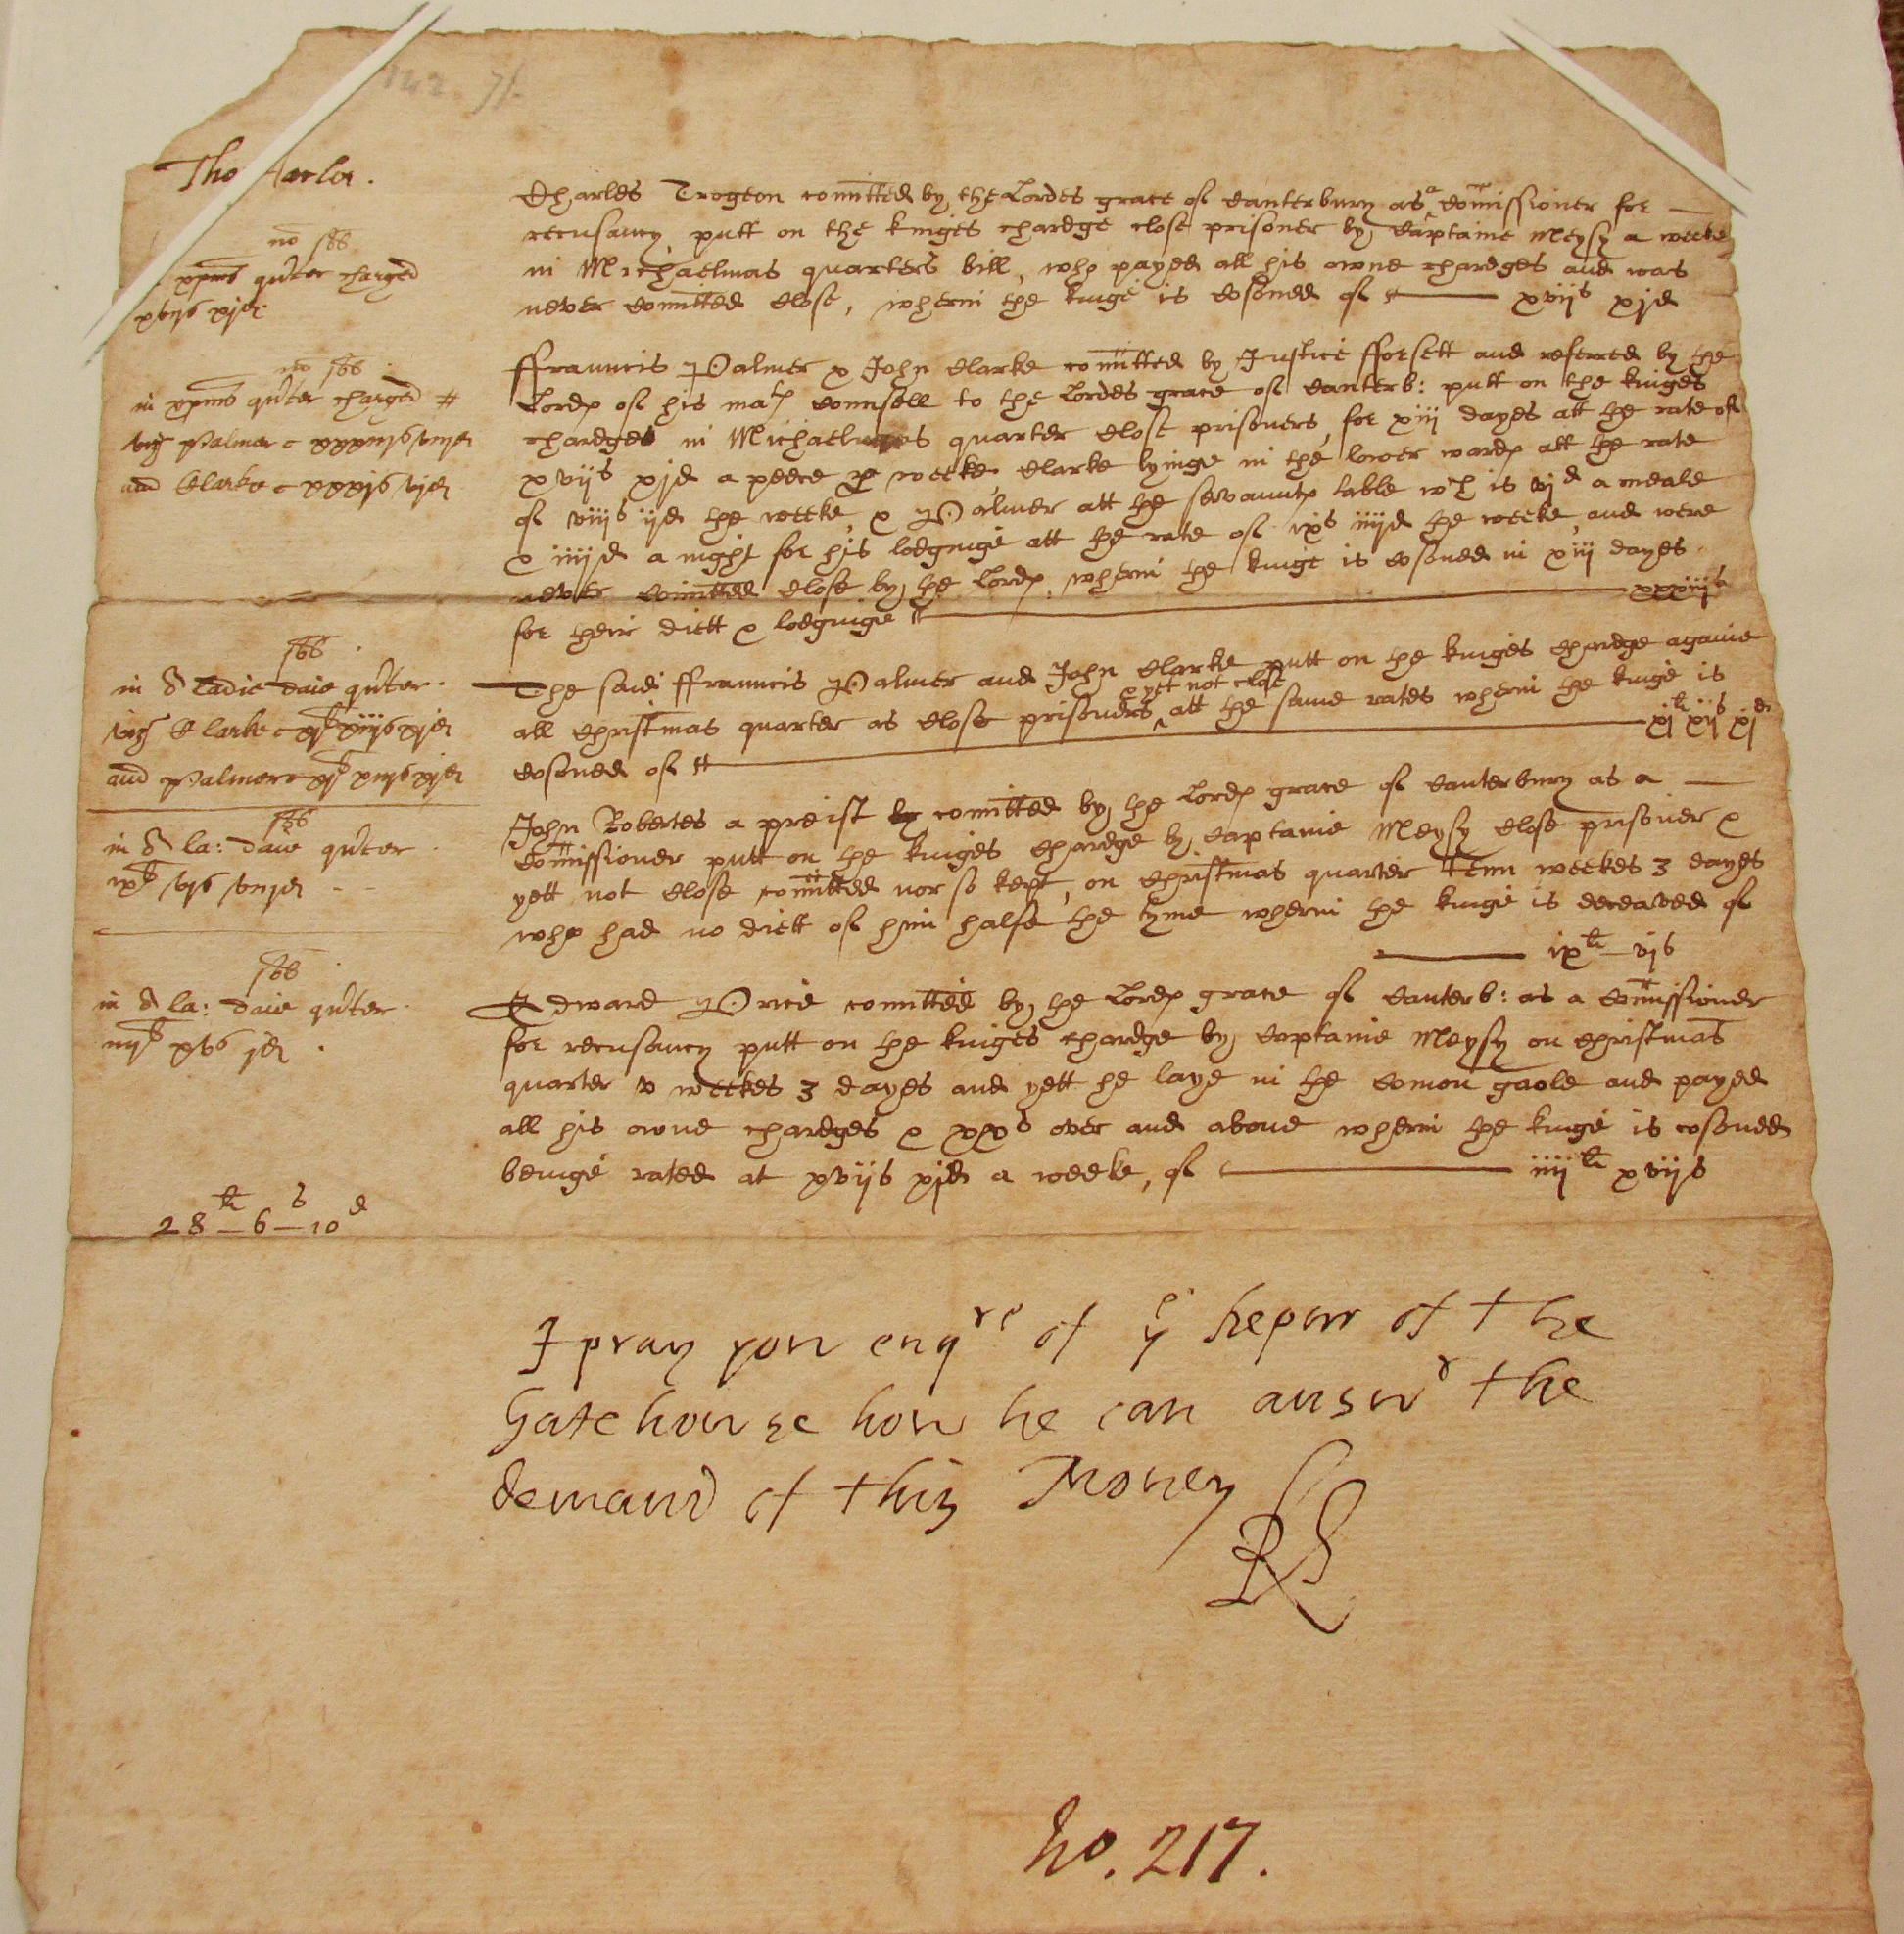 142 71.
Tho
no
xpms quarter charged
xvijs xjd.
Charles Trogeon comitted by the Lordes grace of Canterbury as a Comissioner for
recusancy, putt on the kinges chardge close prisoner by Captaine Meysy a weeke
in Michaelmas quarters bill, who payed all his owne chardges and was
never comitted close, wherin the kinge is cosoned of xvijs xjd
no
in xpms quarter charged
viz Palmer
and Clarke xxxjs vjd
ffrauncis Palmer & John Clarke comitted by Justice fforsett and referred by the
Lordes of his matꝭ Counsell to the Lordes grace of Canterb: putt on the kinges
chardges in Michaelmas quarter close prisoners, for xiij dayes att the rate of
xvijs xjd a peece ꝑ weeke, Clarke lyinge in the lower wardꝭ att the rate
of viijs ijd the weeke, & Palmer att the servauntꝭ table wch is vjd a meale
& iiijd a night for his lodginge att the rate of ixs iiijd the weeke, and were
never comitted close by the Lordꝭ, wherin the kinge is cosoned in xiij dayes
for their diett & lodginge xxxiijs
in Ladie daie quarter.
viz Clarke
and Palmer
The said ffrauncis Palmer and John Clarke putt on the kinges chardge againe
all Christmas quarter as close prisoners & yet not close att the same rates wherin the kinge is
cosoned of xjli xijs xjd
in la: daie quarter
ixli vjs viijd
John Robertes a preist by comitted by the Lordꝭ grace of Canterbury as a
Comissioner putt on the kinges chardge by Captaine Meysy close prisoner &
yett not close comitted nor so kept, on Christmas quarter tenn weekes 3 dayes
who had no diett of him halfe the tyme wherin the kinge is deceaved of
ixli vjs
in la: daie quarter
iiijli xvs jd
Edward Price comitted by the Lordꝭ grace of Canterb: as a Comissioner
for recusancy putt on the kinges chardge by Captaine Meysy on Christmas
quarter v weekes 3 dayes and yett he laye in the Comon gaole and payed
all his owne chardges & xxs over and above wherin the kinge is cosoned
beinge rated at xvijs xjd a weeke, of iiijli xvijs
28li—6s—10d
I pray you enqre of ye keper of the
Gatehouse how he can answr the
demand of this Money
RS
No. 217.